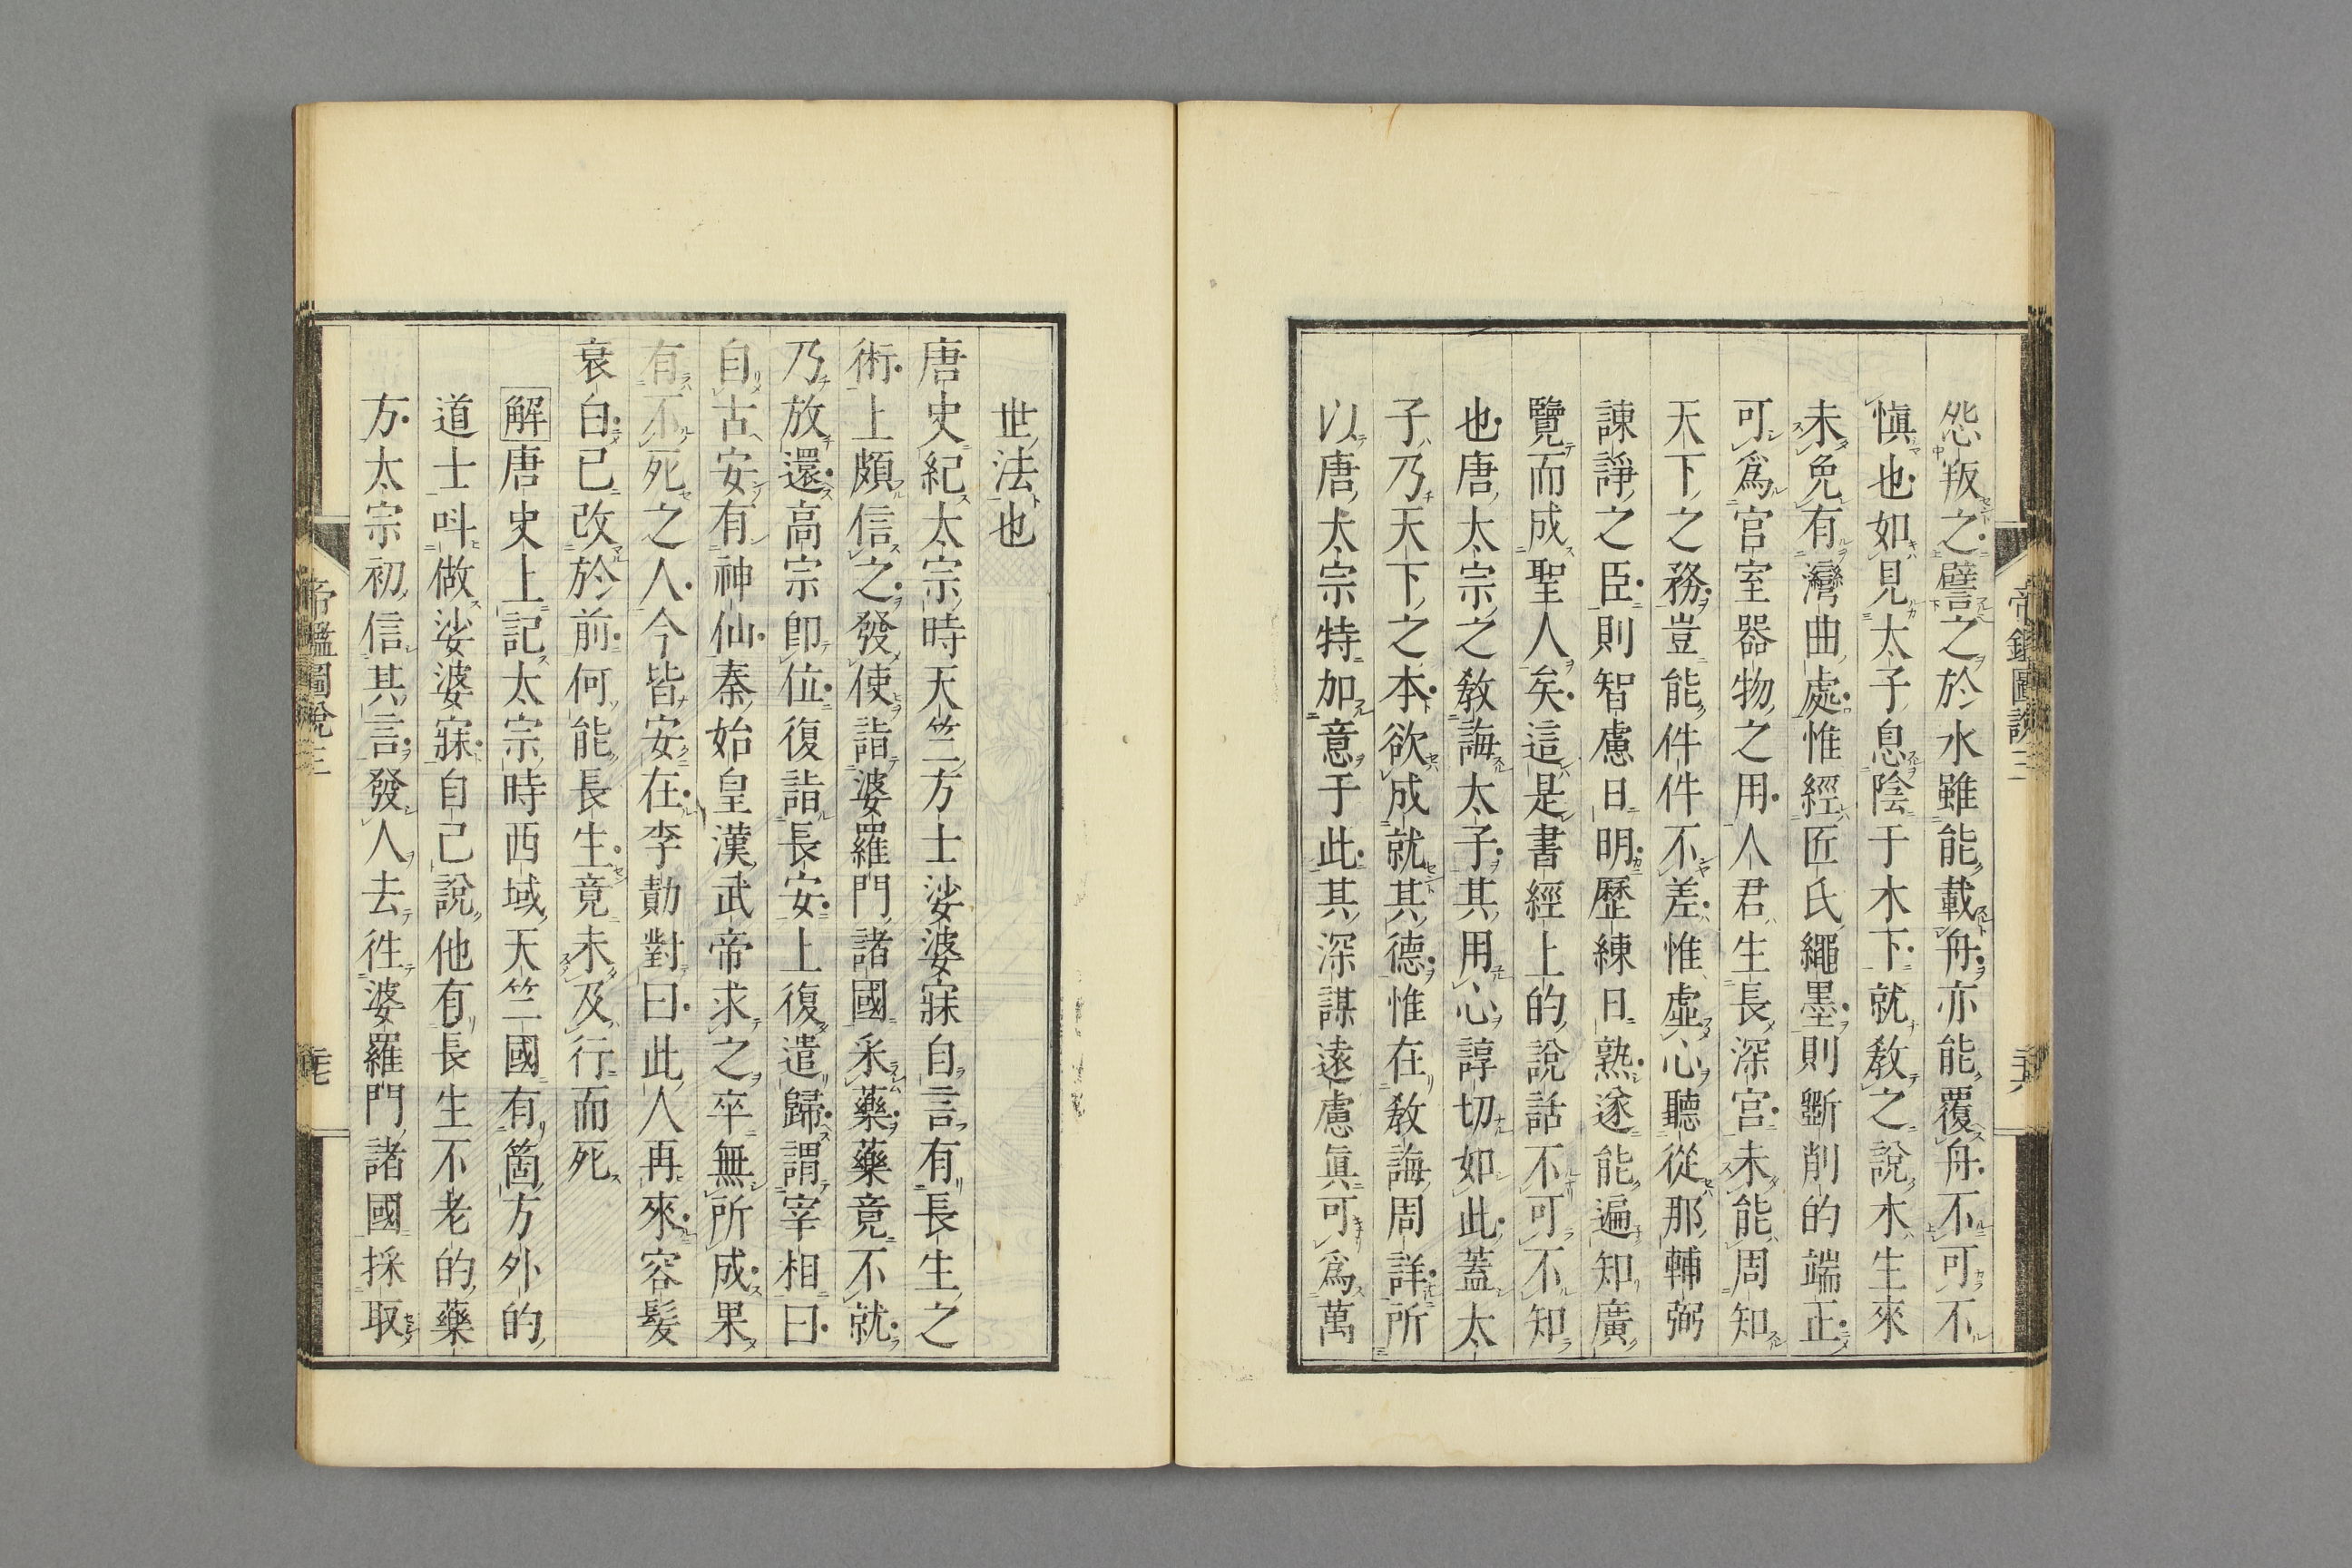 怨叛之譬之於水雖能載舟亦能覆舟不可不
愼也如見太子息陰于木下就敎之說木生來
未免有灣曲處惟經匠氏繩墨則斲削的端正
可爲官室器物之用人君生長深宮未能周知
天下之務豈能件件不差惟虛心聽從那輔弼
諫諍之臣則智慮日明歷練日熟遂能遍知廣
覽而成聖人矣這是書經上的說話不可不知
也唐太宗之敎誨太子其用心諄切如此蓋太
子乃天下之本欲成就其德惟在敎誨周詳所
以唐太宗特加意于此其深謀遠慮眞可爲萬
帝鑑圖說三
世法也
唐史紀太宗時天竺方士娑婆寐自言有長生之
術上頗信之發使詣婆羅門諸國采藥藥竟不就
乃放還高宗卽位復詣長安上復遣歸謂宰相曰
自古安有神仙秦始皇漢武帝求之卒無所成果
有不死之人今皆安在李勣對曰此人再來容髮
衰白已改於前何能長生竟未及行而死
解唐史上記太宗時西域天竺國有箇方外的
道士呌做娑婆寐自己說他有長生不老的藥
方太宗初信其言發人去徃婆羅門諸國採取
帝鑑圖說三